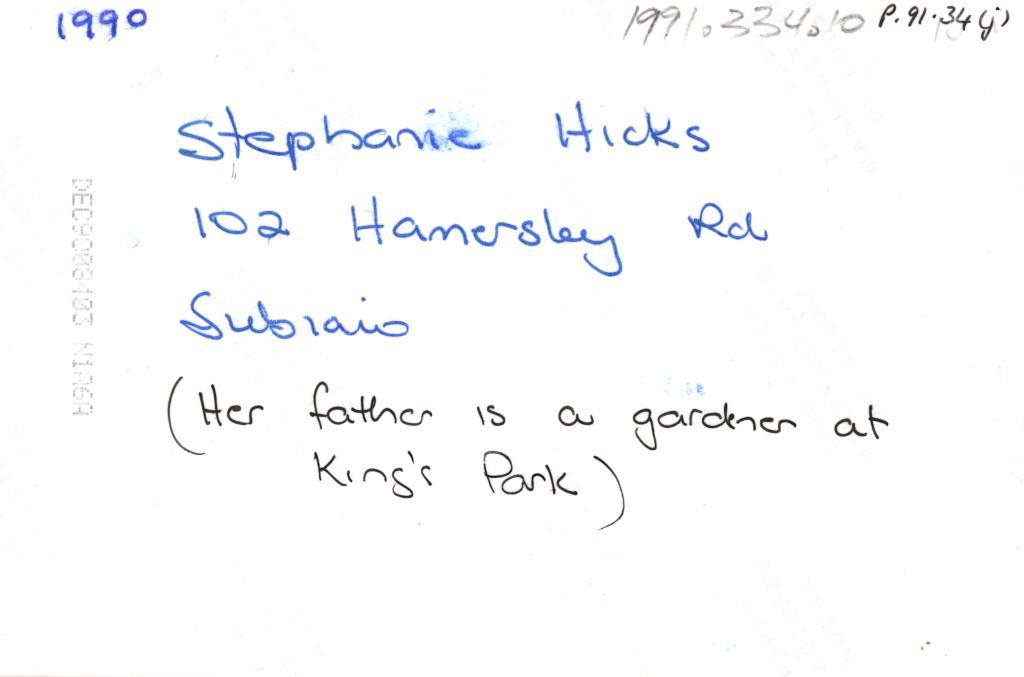 1990
1991.334.10 P.91.34(j)
Stephanie Hicks
102 Hamersley Rd
Subiaio
(Her father is a gardner at
King's Park)